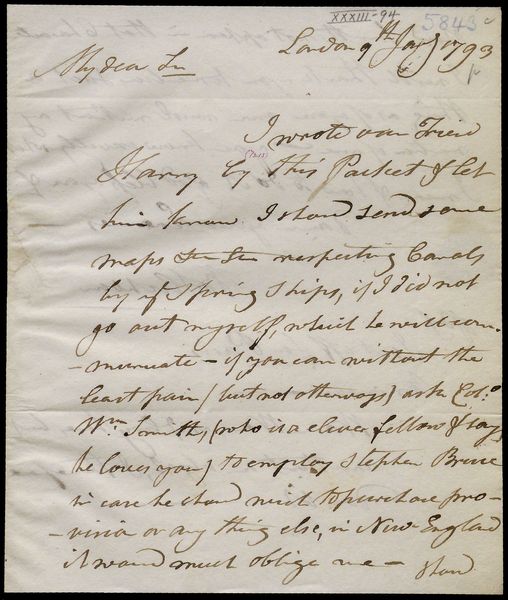 XXXIII-94
5843
London 9th Jany 1793
My dear Sir
I wrote our Friend
Harry by this Packet & let
him know I shoud send some
maps &c &c respecting Canals
by ye Spring Ships, if I did not
go out myself, which he will com-
-municate - if you can without the
least pain (but not otherways) ask Colo.
Wm. Smith, (who is a clever fellow & says
he loves you) to employ Stephen Bruce
in case he shoud wish to purchase pro-
-vision or any thing else, in New England
it woud much oblige me -
shoud